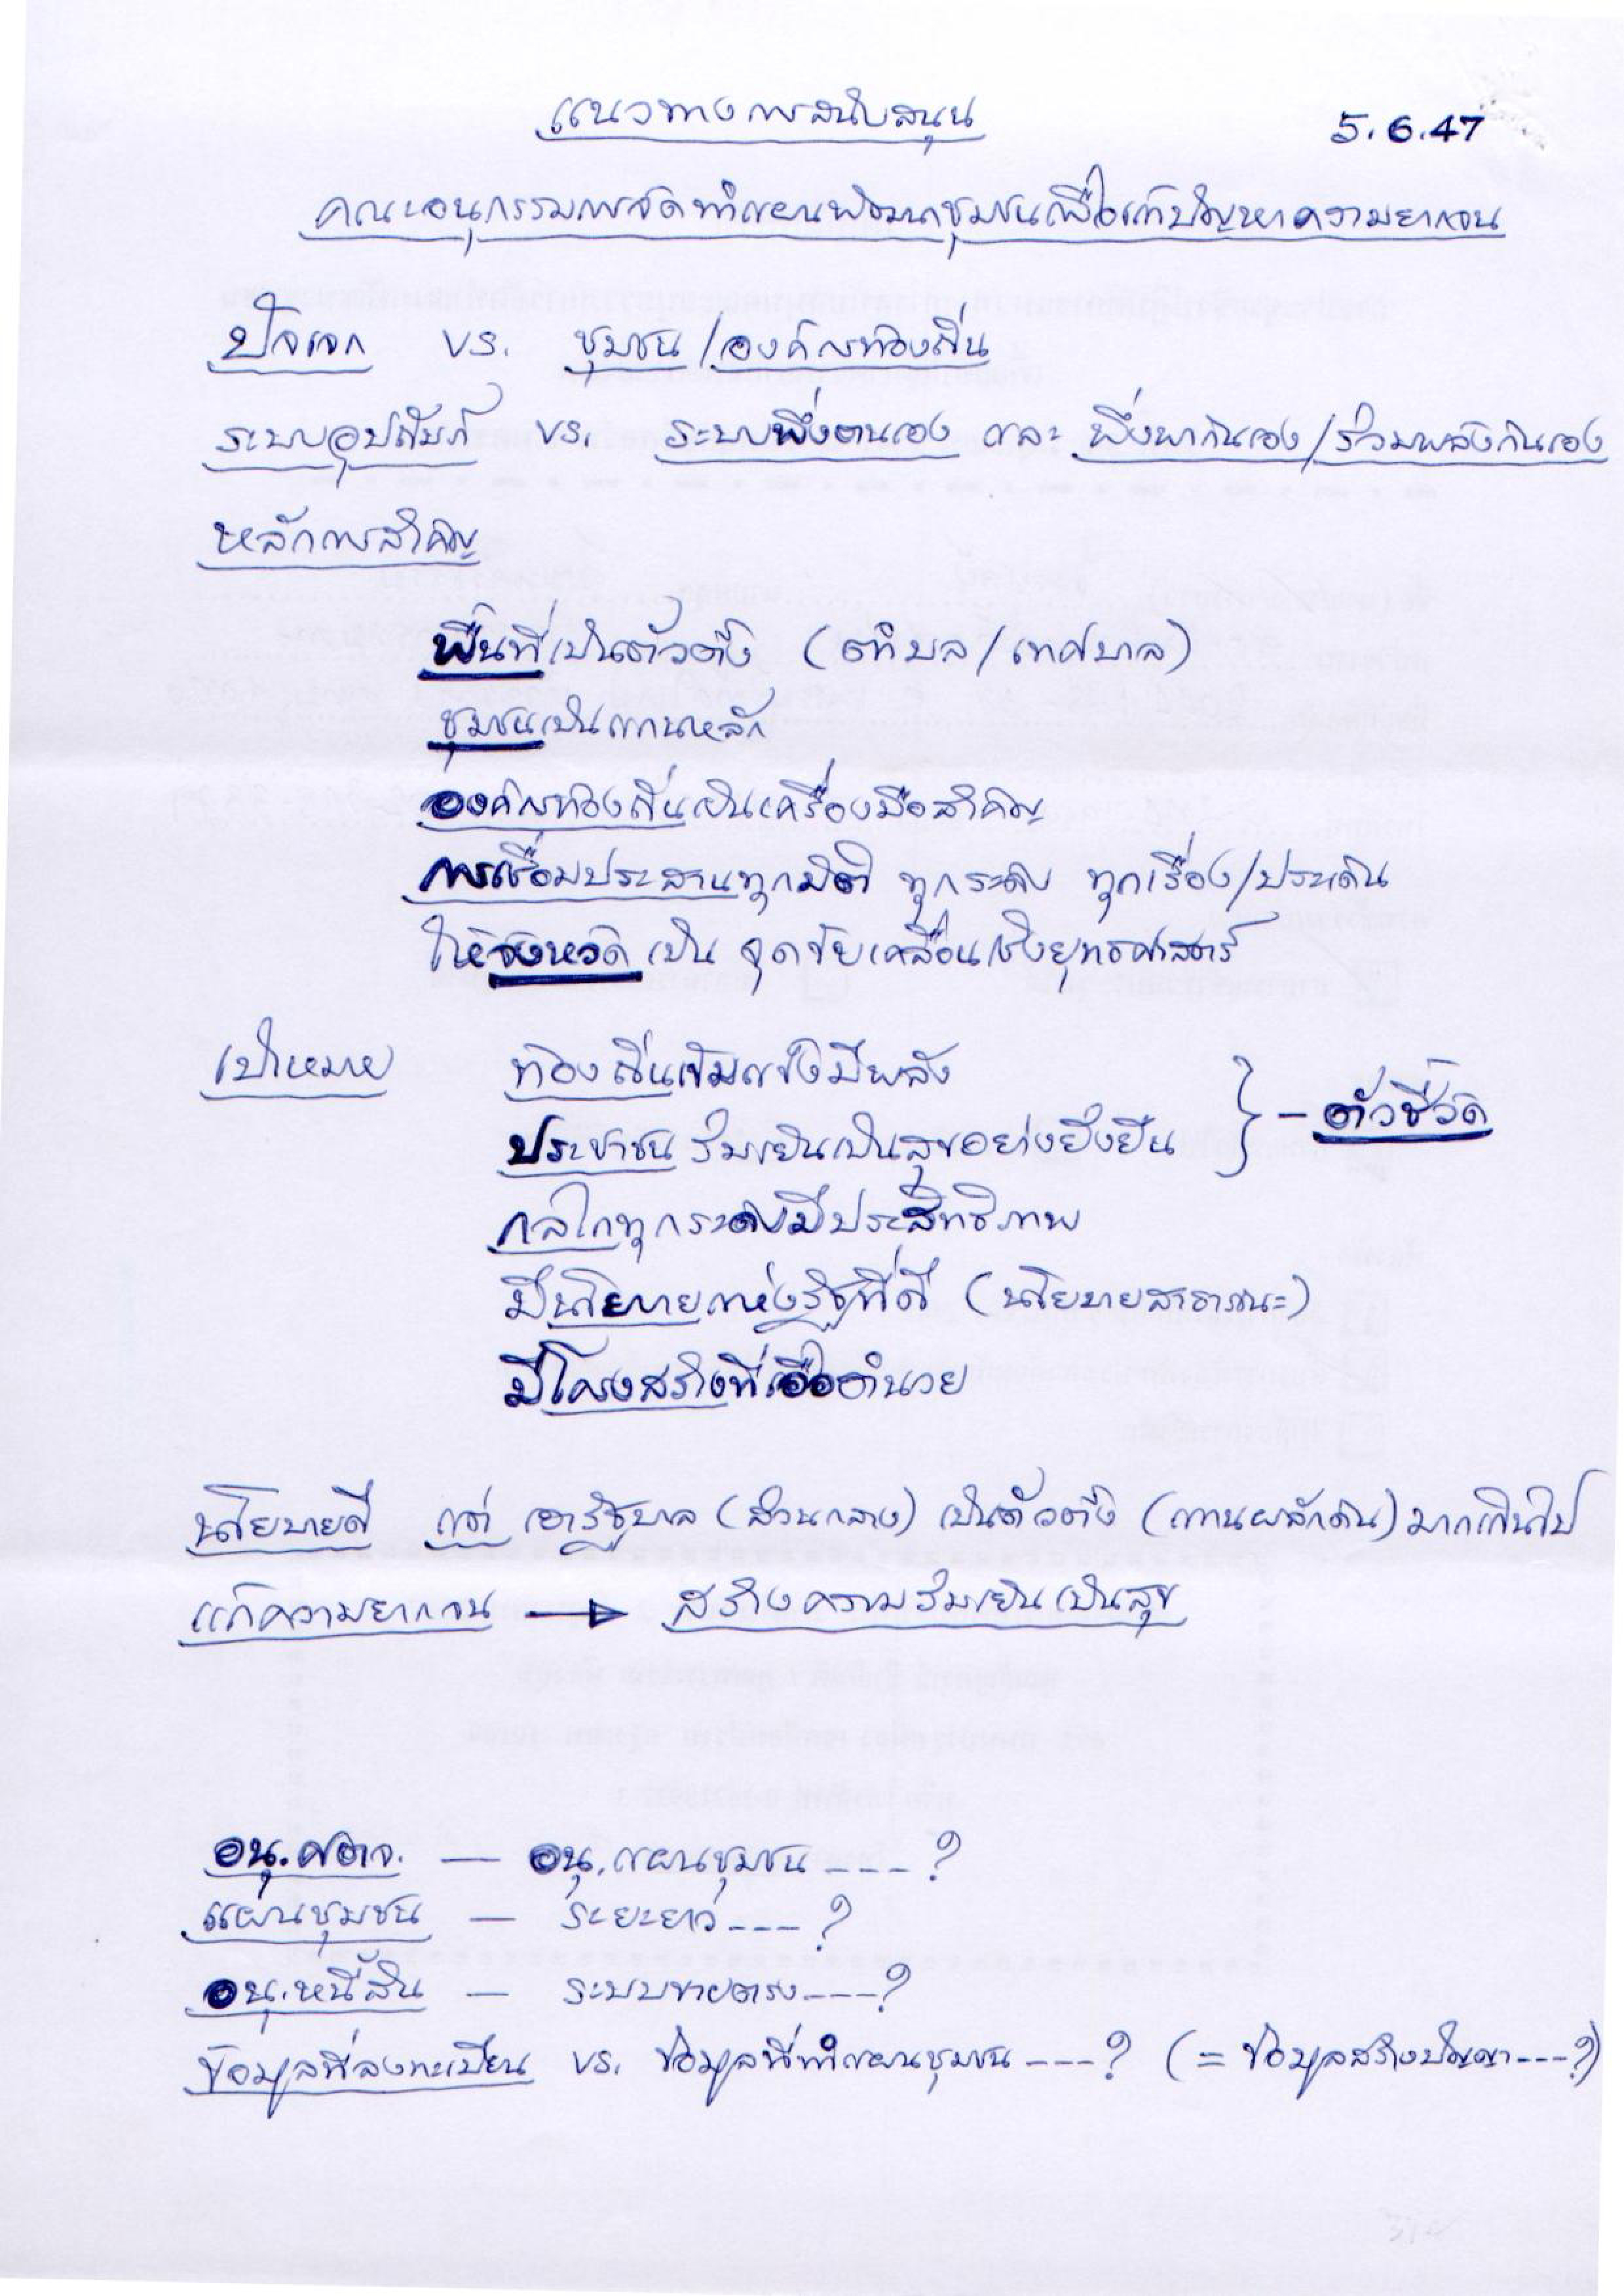 แนวทางการสนับสนุน
5.6.47
คณะอนุกรรมการจัดทำแผนพัฒนาชุมชนเพื่อแก้ปัญหาความยากจน
ปัจเจก vs. ชุมชน/องค์กรท้องถิ่น
ระบบอุปถัมภ์ vs. ระบบพึ่งตนเอง และ พึ่งพากันเอง/ร่วมพลังกันเอง
หลักการสำคัญ
พื้นที่เป็นตัวตั้ง (ตำบล/เทศบาล)
ชุมชนเป็นแกนหลัก
องค์กรท้องถิ่นเป็นเครื่องมือสำคัญ
การเชื่อมประสานทุกมิติ ทุกระดับ ทุกเรื่อง/ประเด็น
ให้จังหวัด เป็น จุดขับเคลื่อนเชิงยุทธศาสตร์
เป้าหมาย ท้องถิ่นเข้มแข็งมีพลัง
ประชาชน ร่มเย็นเป็นสุขอย่างยั่งยืน } - ตัวชี้วัด
กลไกทุกระดับมีประสิทธิภาพ
มีนโยบายแห่งรัฐที่ดี (นโยบายสาธารณะ)
มีโครงสร้างที่เอื้ออำนวย
นโยบายดี แต่ เอารัฐบาล (ส่วนกลาง) เป็นตัวตั้ง (แกนผลักดัน) มากเกินไป
แก้ความยากจน → สร้างความร่มเย็นเป็นสุข
อนุ.ศตจ. — อนุ.แผนชุมชน ---- ?
แผนชุมชน — ระยะยาว ---- ?
อนุ.หนี้สิน — ระบบขายตรง ---- ?
ข้อมูลที่ลงทะเบียน vs. ข้อมูลที่ทำแผนชุมชน ---- ? (= ข้อมูลสร้างปัญญา --- ?)